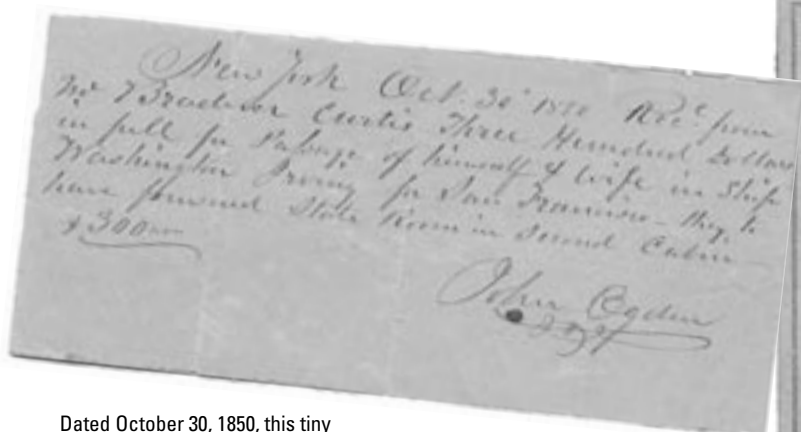 New York Oct. 30th 1850 Rec'd from
Mr T Bradner Curtis Three Hundred Dollars
in full for Passage of himself & wife in Ship
Washington Irving for San Francisco – they to
have forward State Room in Second Cabin
$300
John Ogden
Dated October 30, 1850, this tiny